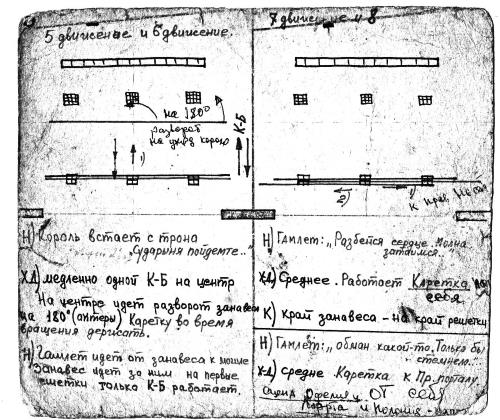 5 движение и 6 движение.
на 180°
разворот
на уход короля
1)
К-Б
Н) Король встает с трона
„Сударыня пойдемте.."
ХД) медленно одной К-Б на центр
На центре идет разворот занавеса
на 180° (актеры) Каретку во время
вращения держать.
Н) Гамлет идет от занавеса к могиле
Занавес идет за ним на первые
решетки только К-Б работает.
7 движение и 8
2)
1)
К прав.
Н) Гамлет: „Разбейся сердце. Молча
затаимся.
ХД) Среднее. Работает Каретка на
себя
К) край занавеса – на край решетки
Н) Гамлет: „обман какой-то. Только бы
стемнело..."
Х-Д) Средне Каретка к Пр. порталу
сцена Офелия ОТ себя
Лаэрта и Полония